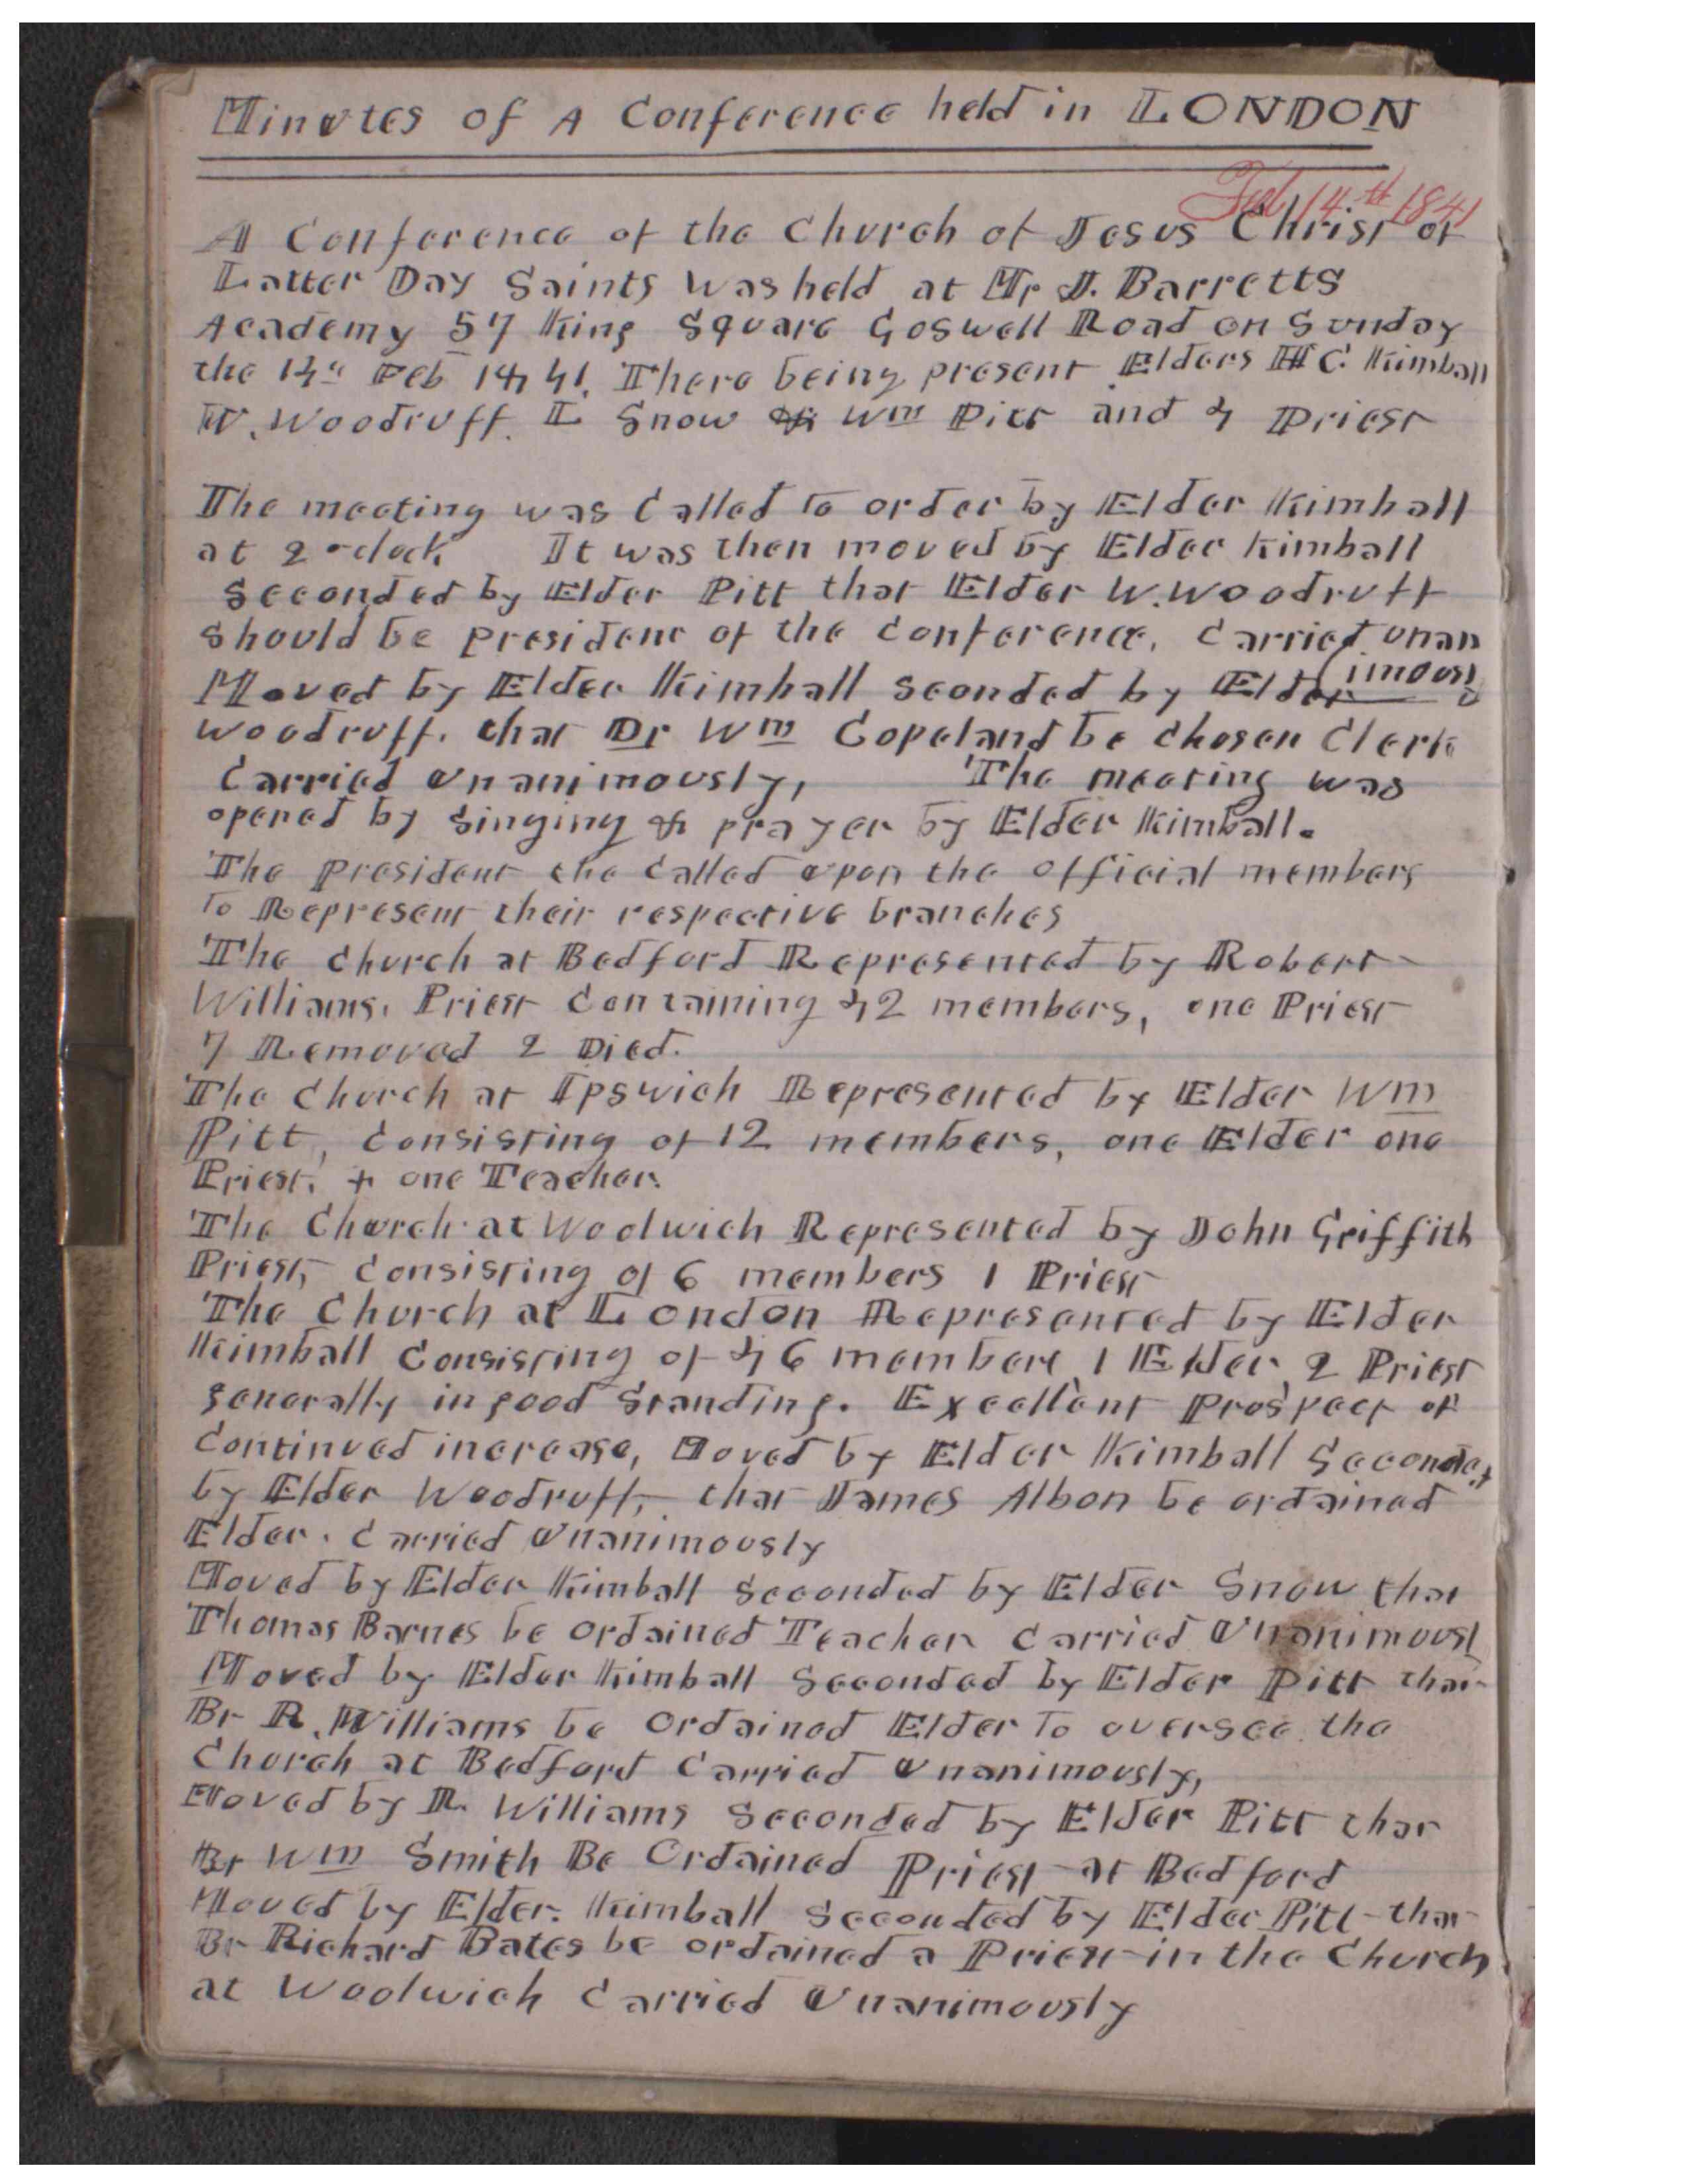 Minutes of A Conference held in LONDON
Feb 14th 1841
A Conference of the Church of Jesus Christ of
Latter Day Saints was held at Mr J. Barretts
Academy 57 King Square Goswell Road on Sunday
the 14th Feb 1841. There being present Elders H C. Kimball
W. Woodruff. L Snow & Wm Pitt and 4 Priest
The meeting was Called to order by Elder Kimball
at 2 o-clock It was then moved by Elder Kimball
Seconded by Elder Pitt that Elder W. Woodruff
should be president of the Conference, Carried unan
(imously
Moved by Elder Kimball seonded by Elder
Woodruff. that Dr Wm Copeland be chosen Clerk
Carried Unanimously, The meeting was
opened by Singing & prayer by Elder Kimball.
The president the Called upon the official members
To Represent their respective branches
The Church at Bedford Represented by Robert
Williams. Priest Containing 42 members, one Priest
7 Removed 2 Died.
The Church at Ipswich Represented by Elder Wm
Pitt, Consisting of 12 members, one Elder one
Priest. + one Teacher.
The Church at Woolwich Represented by John Griffith
Priest, Consisting of 6 members 1 Priest
The Church at London Represented by Elder
Kimball Consisting of 46 members 1 Elder 2 Priest
generally in good Standing. Excellent Prospect of
Continued increase, Moved by Elder Kimball Seconded
by Elder Woodruff, that James Albon be ordained
Elder. Carried Unanimously
Moved by Elder Kimball Seconded by Elder Snow that
Thomas Barnes be Ordained Teacher Carried Unanimousl
Moved by Elder Kimball Seconded by Elder Pitt that
Br R. Williams be Ordained Elder To oversee the
Church at Bedford Carried Unanimously,
Moved by R. Williams Seconded by Elder Pitt that
Br Wm Smith Be Ordained Priest at Bedford
Moved by Elder. Kimball Seconded by Elder Pitt - that
Br Richard Bates be ordained a Priest in the Church
at Woolwich Carried Unanimously